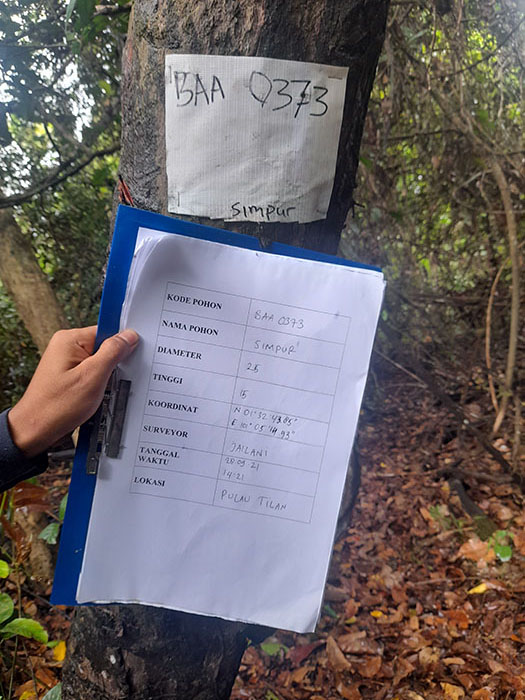 BAA 0373
simpur
KODE POHON BAA 0373
NAMA POHON SIMPUR
DIAMETER 25
TINGGI 15
KOORDINAT N 01°32'43.85"
E 101°05'14.93"
SURVEYOR JAILANI
TANGGAL 28.03.21
WAKTU 14:21
LOKASI PULAU TILAN